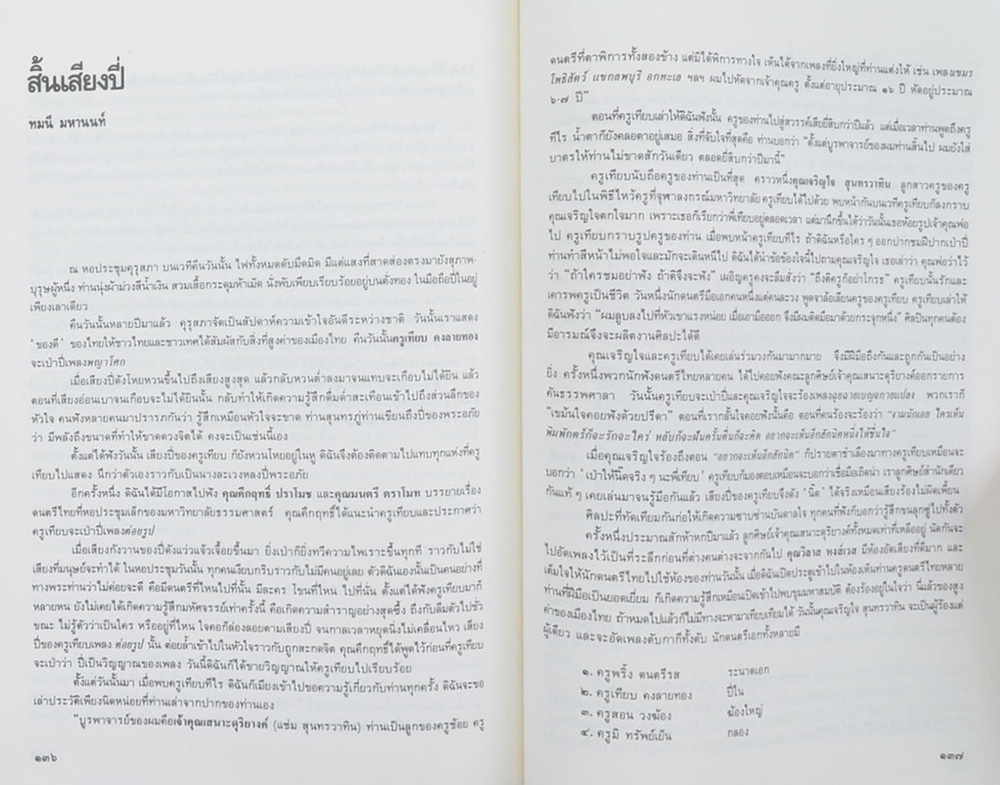 สิ้นเสียงปี่
ทมนี มหานนท์
ณ หอประชุมคุรุสภา บนเวทีคืนวันนั้น ไฟทั้งหมดดับมืดมิด มีแต่แสงที่สาดส่องตรงมายังสุภาพ-
บุรุษผู้หนึ่ง ท่านนุ่งผ้าม่วงสีน้ำเงิน สวมเสื้อกระดุมห้าเม็ด นั่งพับเพียบเรียบร้อยอยู่บนตั่งทอง ในมือถือปี่ในอยู่
เพียงเลาเดียว
คืนวันนั้นหลายปีมาแล้ว คุรุสภาจัดเป็นสัปดาห์ความเข้าใจอันดีระหว่างชาติ วันนั้นเราแสดง
'ของดี' ของไทยให้ชาวไทยและชาวเทศได้สัมผัสกับสิ่งที่สูงค่าของเมืองไทย คืนวันนั้นครูเทียบ คงลายทอง
จะเป่าปี่เพลงพญาโศก
เมื่อเสียงปี่ดังโหยหวนขึ้นไปถึงเสียงสูงสุด แล้วกลับหวนต่ำลงมาจนแทบจะเกือบไม่ได้ยิน แล้ว
ตอนที่เสียงอ่อนเบาจนเกือบจะไม่ได้ยินนั้น กลับทำให้เกิดความรู้สึกดื่มด่ำสะเทือนเข้าไปถึงส่วนลึกของ
หัวใจ คนฟังหลายคนมาปรารภกันว่า รู้สึกเหมือนหัวใจจะขาด ท่านสุนทรภู่ท่านเขียนถึงปี่ของพระอภัย
ว่า มีพลังถึงขนาดที่ทำให้ขาดดวงจิตได้ คงจะเป็นเช่นนี้เอง
ตั้งแต่ได้ฟังวันนั้น เสียงปี่ของครูเทียบ ก็ยังหวนโหยอยู่ในหู ดิฉันจึงต้องติดตามไปแทบทุกแห่งที่ครู
เทียบไปแสดง นึกว่าตัวเองราวกับเป็นนางละเวงหลงปี่พระอภัย
อีกครั้งหนึ่ง ดิฉันได้มีโอกาสไปฟัง คุณคึกฤทธิ์ ปราโมช และคุณมนตรี ตราโมท บรรยายเรื่อง
ดนตรีไทยที่หอประชุมเล็กของมหาวิทยาลัยธรรมศาสตร์ คุณคึกฤทธิ์ได้แนะนำครูเทียบและประกาศว่า
ครูเทียบจะเป่าปี่เพลงต่อยรูป
เมื่อเสียงกังวานของปี่ดังแว่วแจ้วเจื้อยขึ้นมา ยิ่งเป่าก็ยิ่งทวีความไพเราะขึ้นทุกที ราวกับไม่ใช่
เสียงที่มนุษย์จะทำได้ ในหอประชุมวันนั้น ทุกคนเงียบกริบราวกับไม่มีคนอยู่เลย ตัวดิฉันเองนั้นเป็นคนอย่างที่
ทางพระท่านว่าไม่ค่อยจะดี คือมีดนตรีที่ไหนไปที่นั้น มีละคร โขนที่ไหน ไปที่นั้น ตั้งแต่ได้ฟังครูเทียบมาก็
หลายหน ยังไม่เคยได้เกิดความรู้สึกมหัศจรรย์เท่าครั้งนี้ คือเกิดความสำราญอย่างสุดซึ้ง ถึงกับลืมตัวไปชั่ว
ขณะ ไม่รู้ตัวว่าเป็นใคร หรืออยู่ที่ไหน ใจคอก็ล่องลอยตามเสียงปี่ จนกาลเวลาหยุดนิ่งไม่เคลื่อนไหว เสียง
ปี่ของครูเทียบเพลง ต่อยรูป นั้น ต่อยล้ำเข้าไปในหัวใจราวกับถูกสะกดจิต คุณคึกฤทธิ์ได้พูดไว้ก่อนที่ครูเทียบ
จะเป่าว่า ปี่เป็นวิญญาณของเพลง วันนี้ดิฉันก็ได้ขายวิญญาณให้ครูเทียบไปเรียบร้อย
ตั้งแต่วันนั้นมา เมื่อพบครูเทียบทีไร ดิฉันก็เมียงเข้าไปขอความรู้เกี่ยวกับท่านทุกครั้ง ดิฉันจะขอ
เล่าประวัติเพียงนิดหน่อยที่ท่านเล่าจากปากของท่านเอง
"บูรพาจารย์ของผมคือเจ้าคุณเสนาะดุริยางค์ (แช่ม สุนทรวาทิน) ท่านเป็นลูกของครูช้อย ครู
๑๓๖
ดนตรีที่ตาพิการทั้งสองข้าง แต่มิได้พิการทางใจ เห็นได้จากเพลงที่ยิ่งใหญ่ที่ท่านแต่งให้ เช่น เพลงเขมร
โพธิสัตว์ แขกลพบุรี อกทะเล ฯลฯ ผมไปหัดจากเจ้าคุณครู ตั้งแต่อายุประมาณ ๑๖ ปี หัดอยู่ประมาณ
๖-๗ ปี"
ตอนที่ครูเทียบเล่าให้ดิฉันฟังนั้น ครูของท่านไปสู่สวรรค์เสียยี่สิบกว่าปีแล้ว แต่เมื่อเวลาท่านพูดถึงครู
ทีไร น้ำตาก็ยังคลอตาอยู่เสมอ สิ่งที่จับใจที่สุดคือ ท่านบอกว่า "ตั้งแต่บูรพาจารย์ของผมท่านสิ้นไป ผมยังใส่
บาตรให้ท่านไม่ขาดสักวันเดียว ตลอดยี่สิบกว่าปีมานี้"
ครูเทียบนับถือครูของท่านเป็นที่สุด คราวหนึ่งคุณเจริญใจ สุนทรวาทิน ลูกสาวครูของครู
เทียบไปในพิธีไหว้ครูที่จุฬาลงกรณ์มหาวิทยาลัย ครูเทียบได้ไปด้วย พบหน้ากันบนเวทีครูเทียบก็ลงกราบ
คุณเจริญใจตกใจมาก เพราะเธอก็เรียกว่าพี่เทียบอยู่ตลอดเวลา แต่มานึกขึ้นได้ว่าวันนั้นเธอห้อยรูปเจ้าคุณพ่อ
ไป ครูเทียบกราบรูปครูของท่าน เมื่อพบหน้าครูเทียบทีไร ถ้าดิฉันหรือใคร ๆ ออกปากชมฝีปากเป่าปี่
ท่านทำสีหน้าไม่พอใจและมักจะเดินหนีไป ดิฉันได้นำข้อข้องใจนี้ไปถามคุณเจริญใจ เธอเล่าว่า คุณพ่อว่าไว้
ว่า "ถ้าใครชมอย่าฟัง ถ้าติจึงจะฟัง" เผอิญครูคงจะลืมสั่งว่า "ถึงติครูก็อย่าโกรธ" ครูเทียบนั้นรักและ
เคารพครูเป็นชีวิต วันหนึ่งนักดนตรีมือเอกคนหนึ่งแต่คนละวง พูดจาล้อเลียนครูของครูเทียบ ครูเทียบเล่าให้
ดิฉันฟังว่า "ผมลูบลงไปที่หัวเขาแรงหน่อย เมื่อเอามือออก จึงมีผมติดมือมาด้วยกระจุกหนึ่ง" ศิลปินทุกคนต้อง
มีอารมณ์จึงจะผลิตงานศิลปะได้ดี
คุณเจริญใจและครูเทียบได้เคยเล่นร่วมวงกันมามากมาย จึงมีฝีมือถึงกันและถูกกันเป็นอย่าง
ยิ่ง ครั้งหนึ่งพวกนักฟังดนตรีไทยหลายคน ได้ไปคอยฟังคณะลูกศิษย์เจ้าคุณเสนาะดุริยางค์ออกรายการ
คันธรรพศาลา วันนั้นครูเทียบจะเป่าปี่และคุณเจริญใจจะร้องเพลงฉุยฉายเบญกายแปลง พวกเราก็
"เขม้นใจคอยฟังด้วยปรีดา" ตอนที่เรากลั้นใจคอยฟังนั้นคือ ตอนที่คนร้องจะร้องว่า "งามนักเอย ใครเห็น
พิมพักตร์ก็จะรักจะใคร่ หลับก็จะฝันครั้นตื่นก็จะคิด อยากจะเห็นอีกสักนิดหนึ่งให้ชื่นใจ"
เมื่อคุณเจริญใจร้องถึงตอน "อยากจะเห็นอีกสักนิด" ก็ปรายตาชำเลืองมาทางครูเทียบเหมือนจะ
บอกว่า 'เป่าให้นี๊ดจริง ๆ นะพี่เทียบ' ครูเทียบก็มองตอบเหมือนจะบอกว่าเชื่อมือเถิดน่า เราลูกศิษย์สำนักเดียว
กันแท้ ๆ เคยเล่นมาจนรู้มือกันแล้ว เสียงปี่ของครูเทียบจึงดัง 'นี๊ด' ได้จริงเหมือนเสียงร้องไม่ผิดเพี้ยน
ศิลปะที่ทัดเทียมกันก่อให้เกิดความซาบซ่านบันดาลใจ ทุกคนที่ฟังก็บอกว่ารู้สึกขนลุกชูไปทั้งตัว
ครั้งหนึ่งประมาณสักห้าหกปีมาแล้ว ลูกศิษย์เจ้าคุณเสนาะดุริยางค์ทั้งหมดเท่าที่เหลืออยู่ นัดกันจะ
ไปอัดเพลงไว้เป็นที่ระลึกก่อนที่ต่างคนต่างจะจากกันไป คุณวิลาส หงสเวส มีห้องอัดเสียงที่ดีมาก และ
เต็มใจให้นักดนตรีไทยไปใช้ห้องของท่านวันนั้น เมื่อดิฉันเปิดประตูเข้าไปในห้องเห็นท่านครูดนตรีไทยหลาย
ท่านที่ฝีมือเป็นยอดเยี่ยม ก็เกิดความรู้สึกเหมือนเปิดเข้าไปพบขุมมหาสมบัติ ต้องร้องอยู่ในใจว่า นี่แล้วของสูง
ค่าของเมืองไทย ถ้าหมดไปแล้วก็ไม่มีทางจะหามาเทียบเทียมได้ วันนั้นคุณเจริญใจ สุนทรวาทิน จะเป็นผู้ร้องแต่
ผู้เดียว และจะอัดเพลงตับกากีทั้งตับ นักดนตรีเอกทั้งหลายมี
๑. ครูพริ้ง ดนตรีรส ระนาดเอก
๒. ครูเทียบ คงลายทอง ปี่ใน
๓. ครูสอน วงฆ้อง ฆ้องใหญ่
๔. ครูมิ ทรัพย์เย็น กลอง
๑๓๗